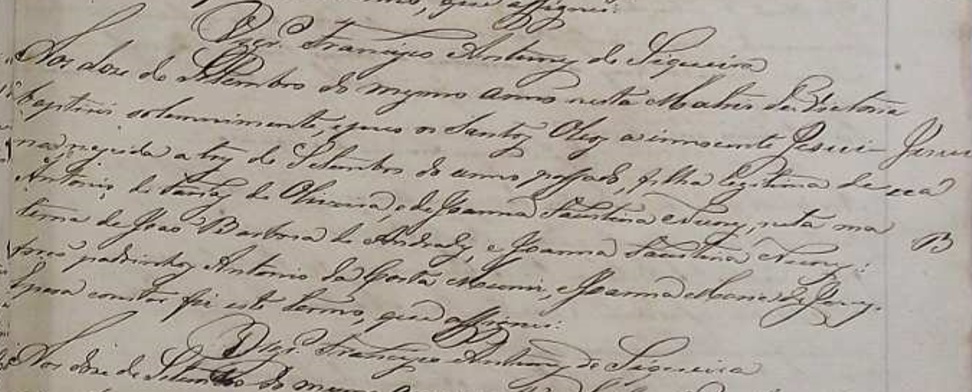 que assignei.
Vigr.º Francisco Antunes de Siqueira
Aos doze de Setembro do mesmo anno nesta Matriz da Victoria
baptisei solemnimente, e puz os Santos Oleos a innocente Jesui-
na nascida a tres de Setembro do anno passado, filha legitima de
Antonio dos Santos de Oliveira, e de Joanna Faustina Nunes, neta ma
terna de Joao Barbosa de Andrade, e Joanna Faustina Nunes:
foraõ padrinhos Antonio da Costa e Joanna Maria de Jesus.
E para constar fiz este termo, que assignei:
Vigr.º Francisco Antunes de Siqueira
Aos doze de Setembro do mesmo anno
B